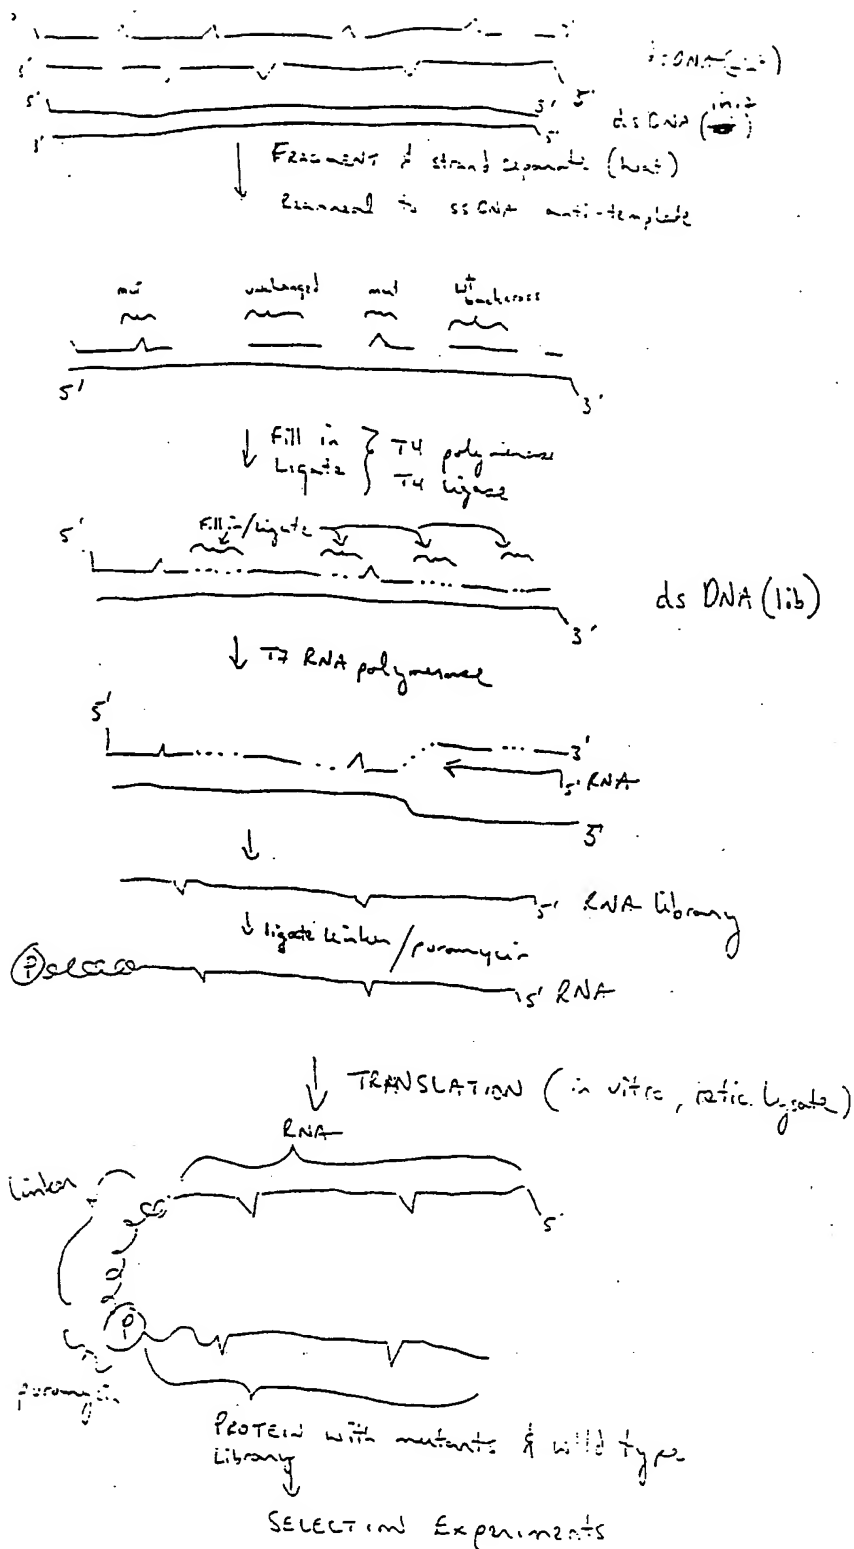 5'
5'
3'
5'
3'
5'
ds DNA (init)
FRAGMENT & strand separate (heat)
Reanneal to ssDNA anti-template
mut unchanged mut WT backcross
5'
3'
Fill in
Ligate
T4 polymerase
T4 ligase
5'
Fill in/ligate
ds DNA (lib)
3'
T7 RNA polymerase
5'
3'
5' RNA
3'
5' RNA library
ligate linker/puromycin
P
5' RNA
TRANSLATION (in vitro, retic. Lysate)
RNA
Linker
5'
P
puromycin
PROTEIN with mutants & wild type
Library
SELECTION Experiments